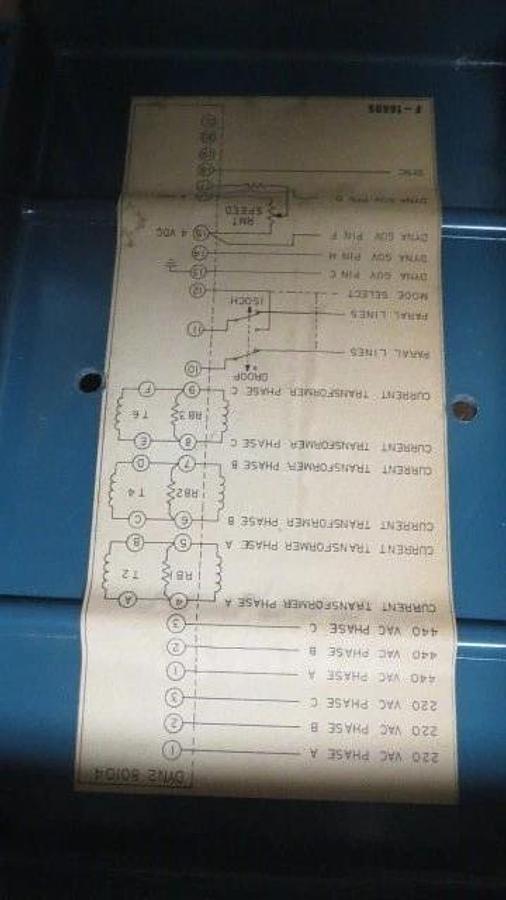 DYN2 80104
220 VAC PHASE A 1
220 VAC PHASE B 2
220 VAC PHASE C 3
440 VAC PHASE A 1
440 VAC PHASE B 2
440 VAC PHASE C 3
CURRENT TRANSFORMER PHASE A 4 A
RB1 T2
CURRENT TRANSFORMER PHASE A 5 B
CURRENT TRANSFORMER PHASE B 6 C
RB2 T4
CURRENT TRANSFORMER PHASE B 7 D
CURRENT TRANSFORMER PHASE C 8 E
RB3 T6
CURRENT TRANSFORMER PHASE C 9 F
DROOP
PARAL LINES 10
PARAL LINES 11
ISOCH
MODE SELECT 12
DYNA GOV PIN C 13
DYNA GOV PIN H 14
DYNA GOV PIN F 15 4 VDC
RMT
SPEED
DYNA GOV PIN
SYNC